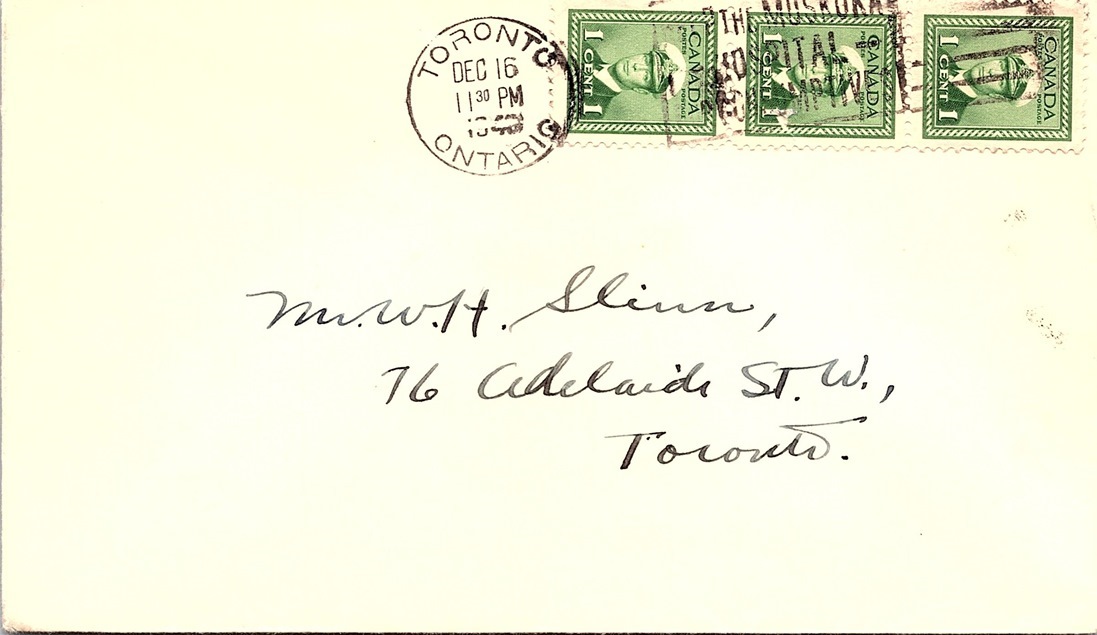 TORONTO
DEC 16
11 30 PM
ONTARIO
THE MUSKOKA
HOSPITAL
CANADA
POSTES POSTAGE
1 CENT 1
CANADA
POSTES POSTAGE
1 CENT 1
CANADA
POSTES POSTAGE
1 CENT 1
Mr. W. H. Slinn,
76 Adelaide St. W.,
Toronto.